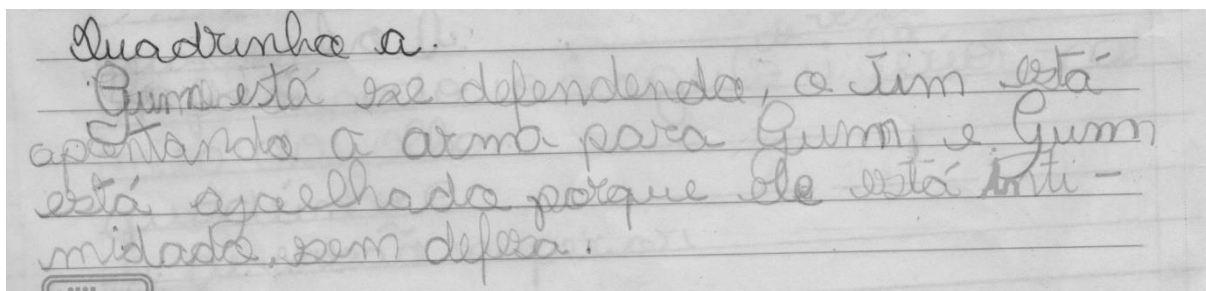 Quadrinho a.
Gumn está se defendendo, o Jim está
apontando a arma para Gumn, e Gumn
está ajoelhado porque ele está inti-
midado, sem defesa.